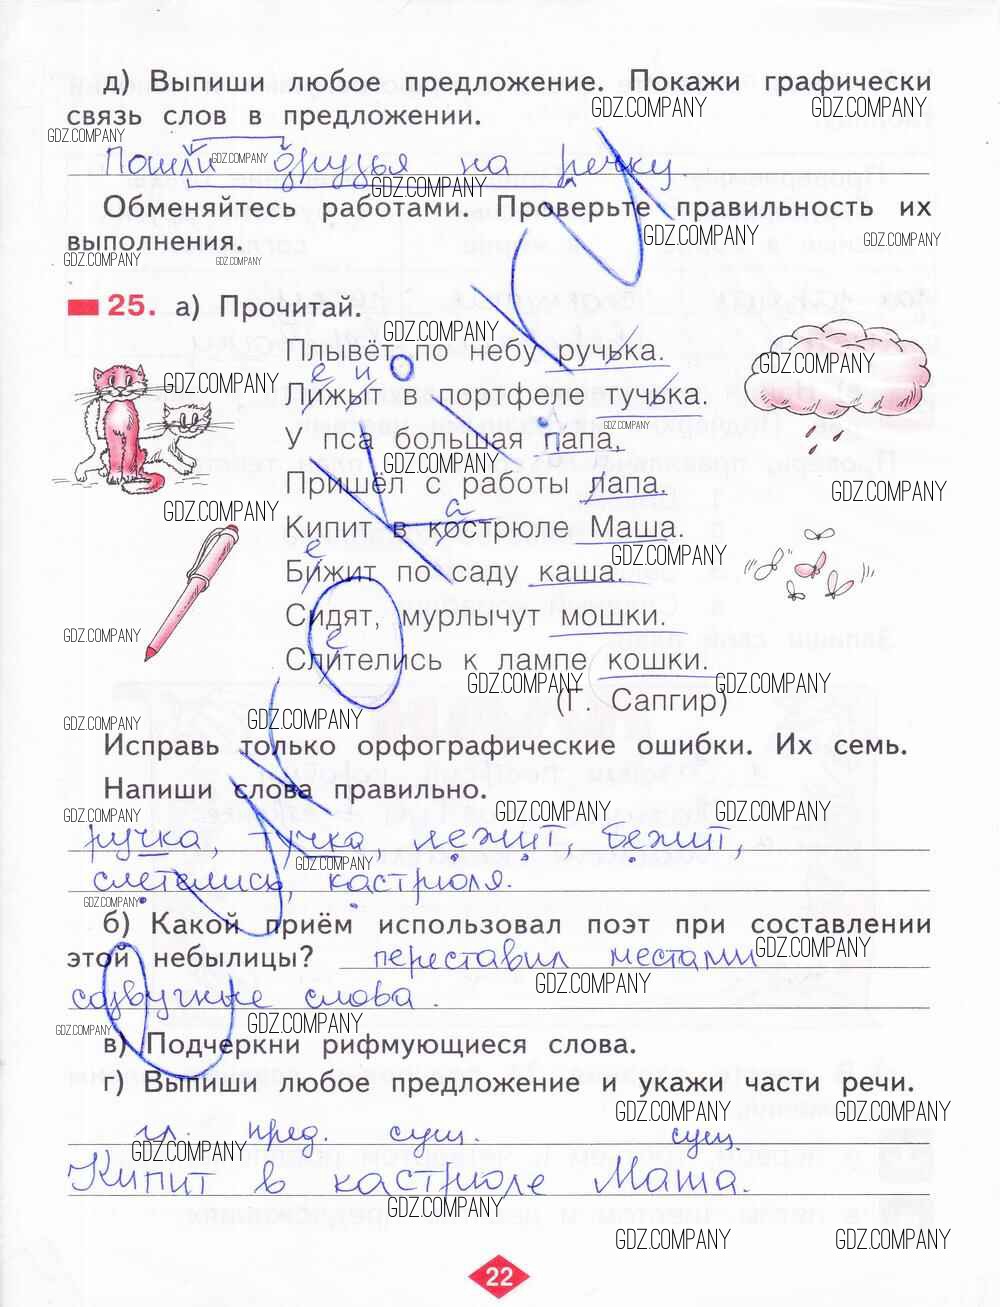 д) Выпиши любое предложение. Покажи графически
связь слов в предложении.
Пошли друзья на речку
Обменяйтесь работами. Проверьте правильность их
выполнения.
25. а) Прочитай.
Плывёт по небу ручька.
е и
Лижыт в портфеле тучька.
У пса большая папа.
Пришёл с работы лапа.
а
Кипит в кострюле Маша.
е
Бижит по саду каша.
Сидят, мурлычут мошки.
е
Слителись к лампе кошки.
(Г. Сапгир)
Исправь только орфографические ошибки. Их семь.
Напиши слова правильно.
ручка, тучка, лежит, бежит,
слетелись, кастрюля.
б) Какой приём использовал поэт при составлении
этой небылицы? переставил местами
созвучные слова.
в) Подчеркни рифмующиеся слова.
г) Выпиши любое предложение и укажи части речи.
гл. пред. сущ. сущ.
Кипит в кастрюле Маша.
22
GDZ.COMPANY